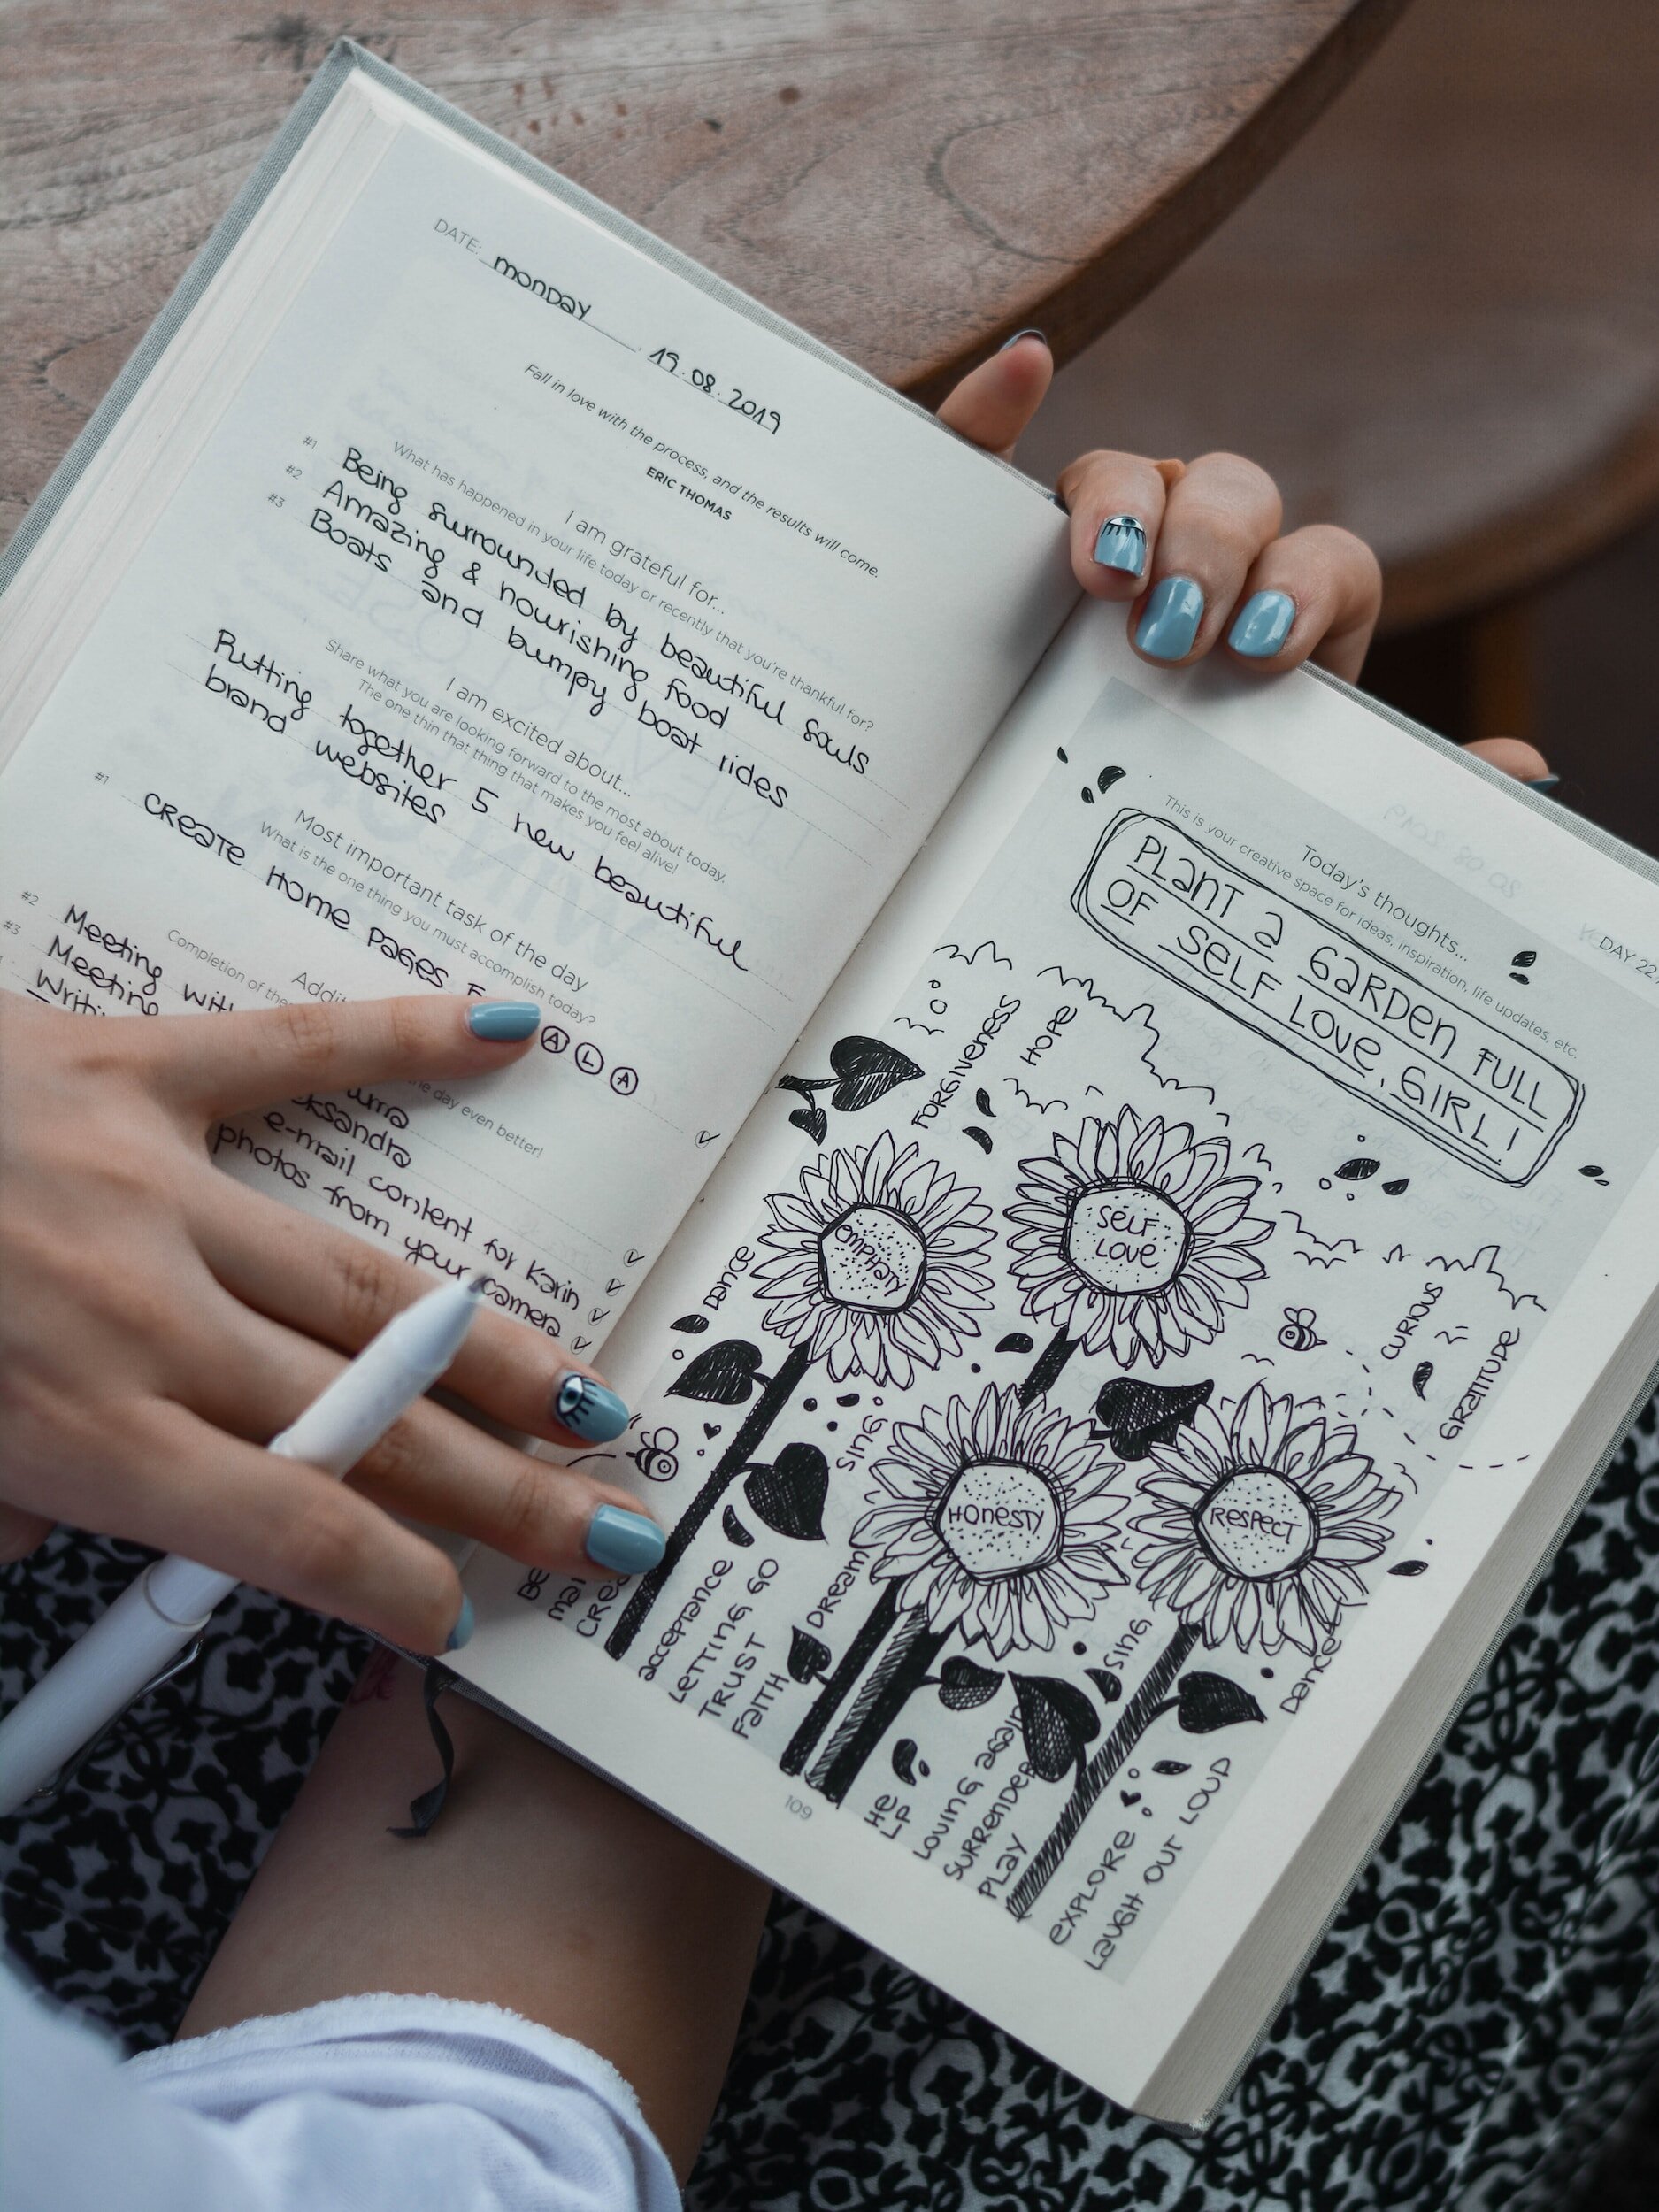 DATE: monday 19.08.2019
Fall in love with the process, and the results will come.
ERIC THOMAS
I am grateful for...
What has happened in your life today or recently that you're thankful for?
#1 Being surrounded by beautiful souls
#2 Amazing & nourishing food
#3 Boats and bumpy boat rides
I am excited about...
Share what you are looking forward to the most about today.
The one thin that thing that makes you feel alive!
Putting together 5 new beautiful
brand websites
Most important task of the day
What is the one thing you must accomplish today?
#1 CREATE HOME PAGES A L A
Completion of the day even better!
#2 Meeting
#3 Meeting
e-mail content for Karin
photos from your camera
DAY 22
Today's thoughts...
This is your creative space for ideas, inspiration, life updates, etc.
PLANT A GARDEN FULL
OF SELF LOVE, GIRL!
FORGIVENESS
HOPE
EMPHATY
SELF
LOVE
DANCE
CURIOUS
GRATITUDE
SING
HONESTY
RESPECT
ACCEPTANCE
LETTING GO
TRUST
FAITH
DREAM
SING
DANCE
HE
LP
LOVING AGAIN
SURRENDER
PLAY
EXPLORE
LAUGH OUT LOUD
109